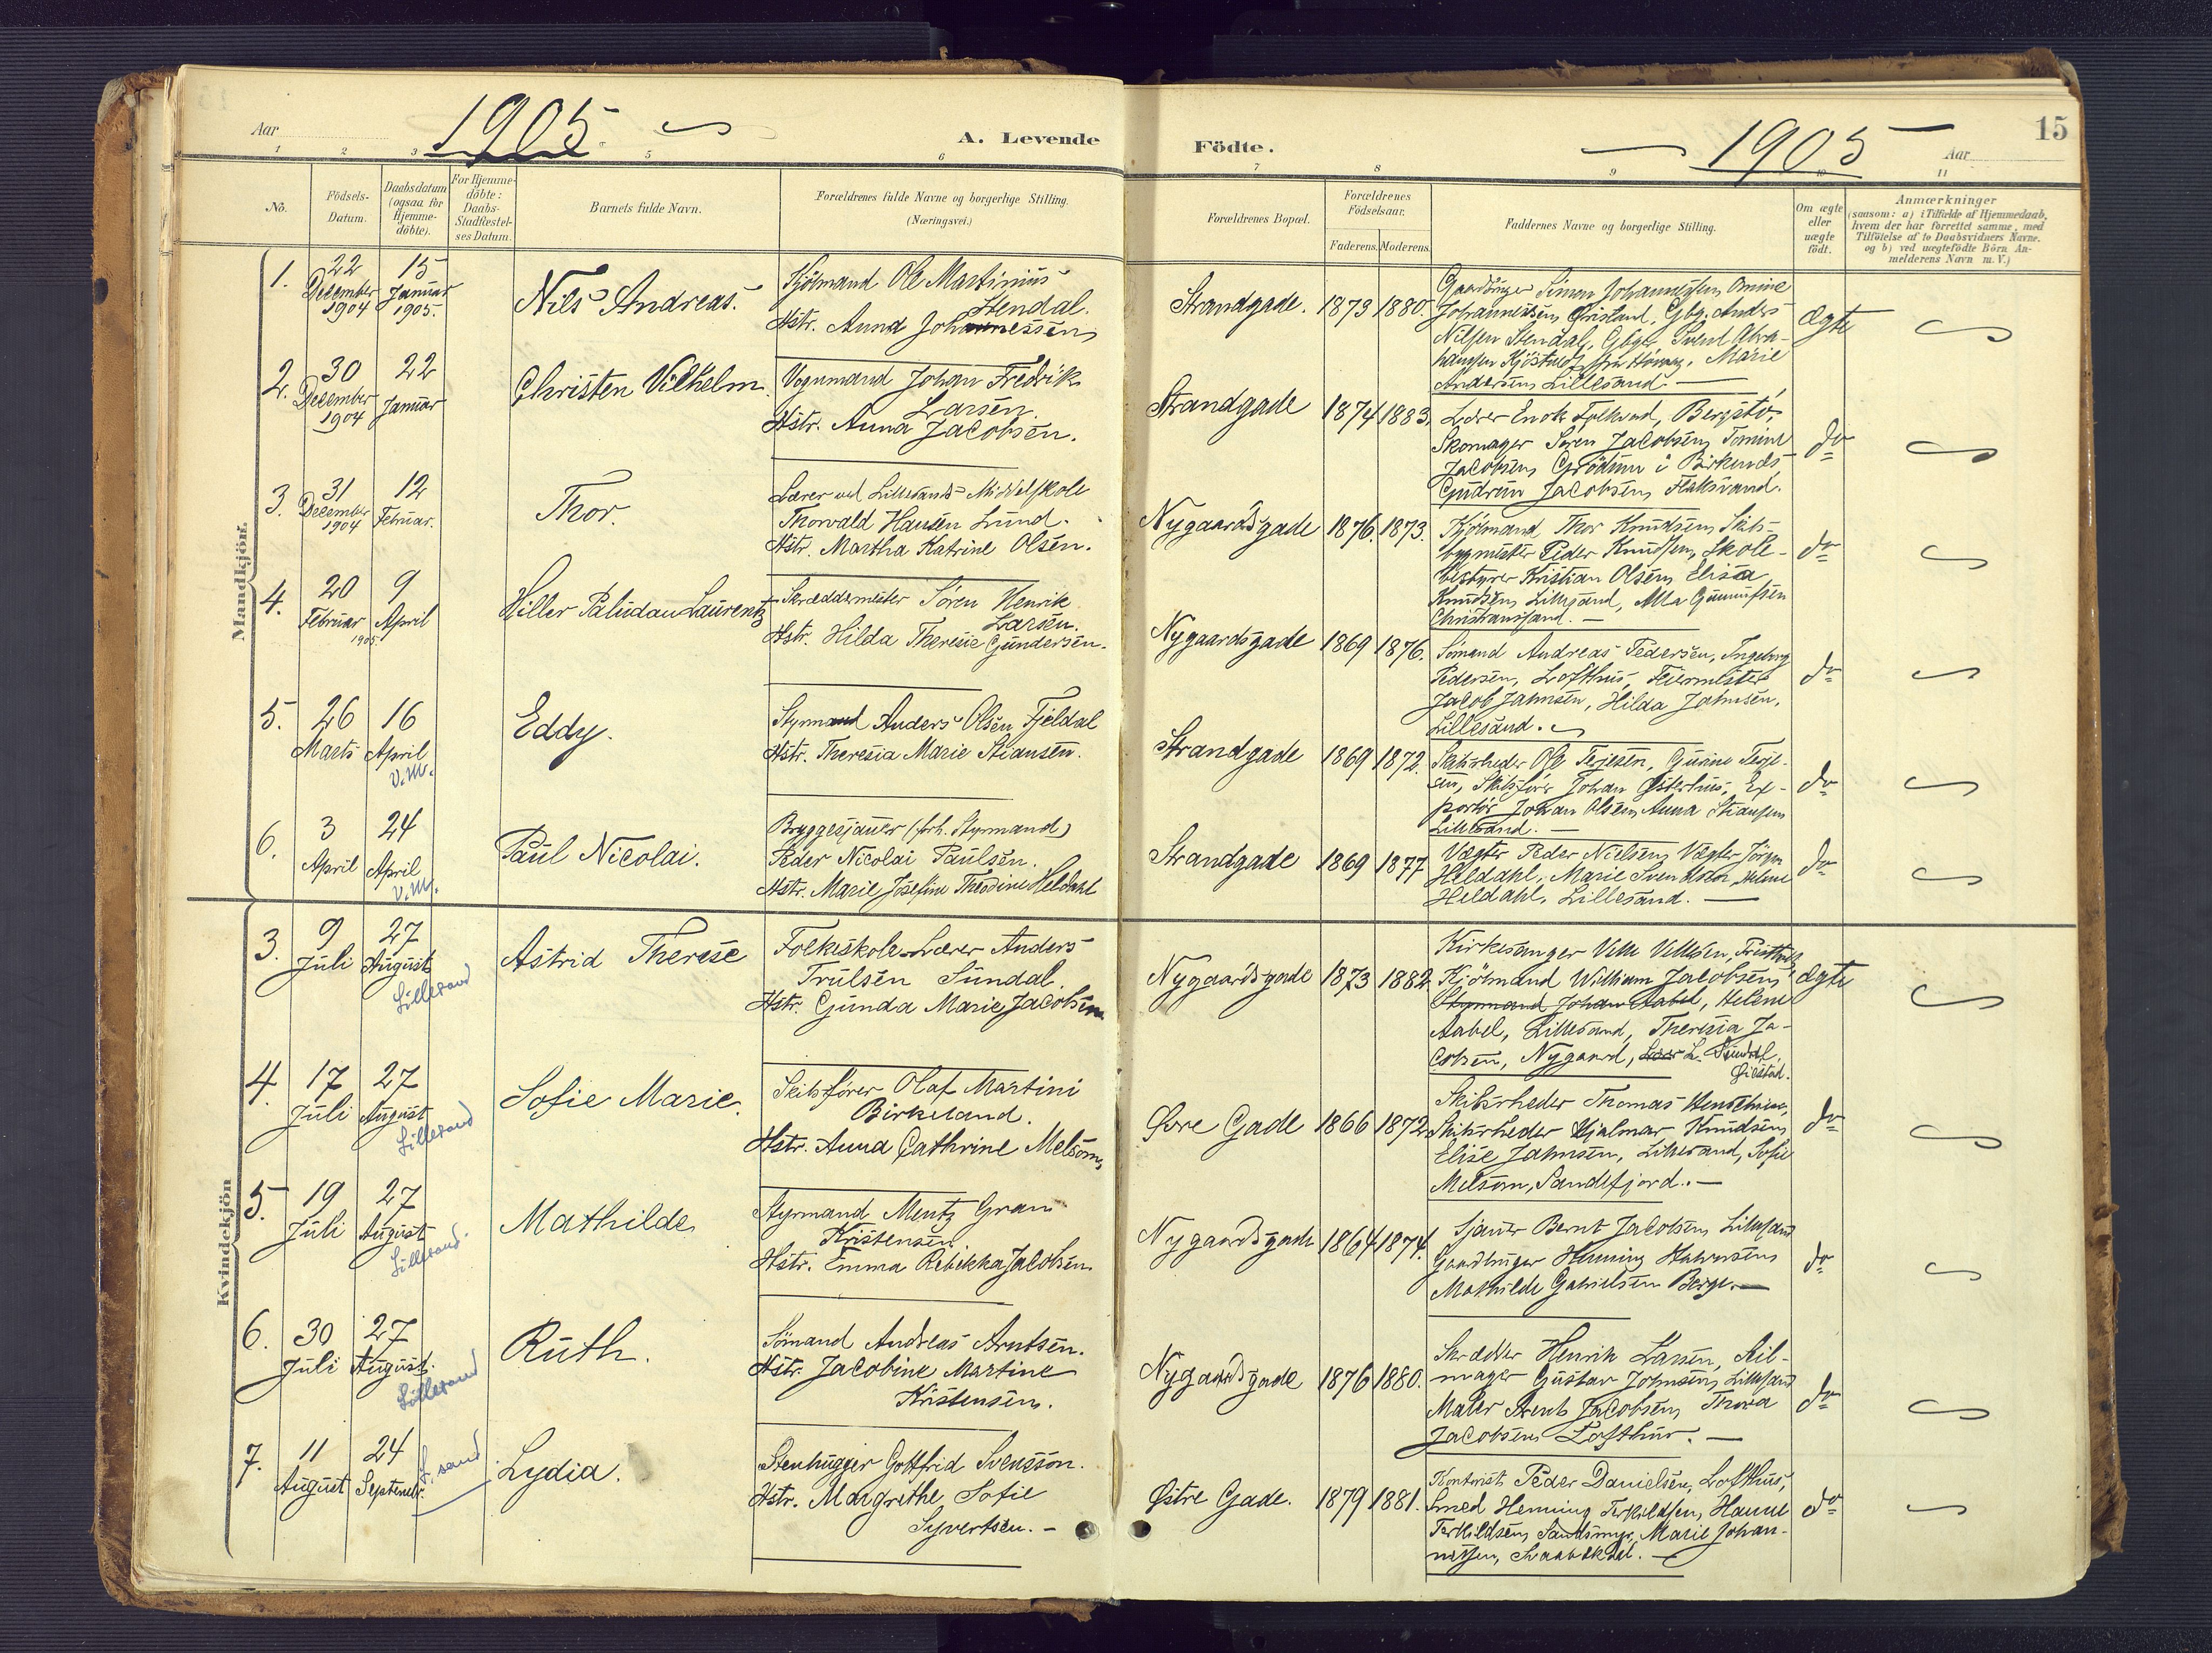 Aar 1905
A. Levende
1 2 3 5 6
Nô.
Födsels-
Datum.
Daabsdatum
(ogsaa for
Hjemme-
döbte).
For Hjemme-
döbte:
Daabs-
Stadfæstel-
ses Datum.
Barnets fulde Navn.
Forældrenes fulde Navne og borgerlige Stilling.
(Næringsvei.)
Mandkjön.
1.
22
December
1904
15
Januar
1905.
Nils Andreas.
Sjömand Ole Martinius
Stendal.
Hstr. Anna Johannessen
2.
30
December
1904
22
Januar
Christen Vilhelm.
Vognmand Johan Fredrik
Larsen.
Hstr. Anna Jacobsen.
3.
31
December
1904
12
Februar.
Thor.
Lærer ved Lillesands Middelskole
Thorvald Hansen Lund.
Hstr. Martha Katrine Olsen.
4.
20
Februar
1905.
9
April
Hiller Paludan Laurentz
Skræddermester Sören Henrik
Larsen.
Hstr. Hilda Theresie Gundersen.
5.
26
Marts
16
April
V.M.
Eddy.
Styrmand Anders Olsen Fjeldal
Hstr. Theresia Marie Stiansen.
6.
3
April
24
April
V.M.
Paul Nicolai.
Bryggesjauer (frh. Styrmand)
Peder Nicolai Paulsen.
Hstr. Marie Josefine Theodine Heldahl
Kvindekjön
3.
9
Juli
27
August
Lillesand
Astrid Therese
Folkeskole-Lærer Anders
Trulsen Sundal.
Hstr. Gunda Marie Jacobsen
4.
17
Juli
27
August
Lillesand
Sofie Marie.
Skibsfører Olaf Martini
Birkeland.
Hstr. Anna Cathrine Melsom,
5.
19
Juli
27
August
Lillesand.
Mathilde
Styrmand Mentz Gran
Kristensen
Hstr. Emma Rebekka Jacobsen
6.
30
Juli
27
August.
Lillesand
Ruth.
Sömand Andreas Arntsen.
Hstr. Jacobine Martine
Kristensen.
7.
11
August
24
September.
L.sand
Lydia.
Stenhugger Gottfrid Svensson.
Hstr. Margrethe Sofie
Syvertsen. -
Födte.
1905
Aar
15
7 8 9 10 11
Forældrenes Bopæl.
Forældrenes
Födselsaar.
Faderens. Moderens.
Faddernes Navne og borgerlige Stilling.
Om ægte
eller
uægte
födt.
Anmærkninger
(saasom: a) i Tilfælde af Hjemmedaab,
hvem der har forrettet samme, med
Tilföielse af to Daabsvidners Navne.
og b) ved uægtefödte Börn An-
melderens Navn m. V.)
Strandgade. 1873 1880.
Gaardbruger Simon Johannessen, Omine
Johannessen, Gbg. Anders
Nilsen Stendal, Gbgr.
Marie
Andersen Lillesand. —
Ægte
Strandgade 1874 1883.
Lærer Enok Bergstö,
Skomager Sören Jacobsen, Tomine
Jacobsen,
Gudrun Jacobsen, Flaksvand.
do
Nygaardsgade 1876. 1873.
Sjömand Thor Knudsen, Skibs-
bygmester Peder Knudsen, Skole-
bestyrer Kristian Olsen, Elisa
Knudsen Lillesand, Alla Gunnufsen
Christianssand. —
do
Nygaardsgade 1869 1876.
Sömand Andreas Pedersen, Ingeborg
Pedersen, Lofthus, Feiermester
Jacob Jahnsen, Hilda Jahnsen,
Lillesand.
do
Strandgade 1869 1872.
Skibsrheder Ole Terjesen, Gurine Terje-
sen, Skibsförer Johan Østerhus, Ex-
portör Johan Olsen, Anna Stiansen
Lillesand. —
do
Strandgade 1869 1877
Vægter Peder Nielsen, Vægter Jörgen
Heldahl, Marie Svendsen, Helene
Heldahl, Lillesand. —
do
Nygaardsgade 1873 1882.
Kirkesanger Velle Vellesen,
Sjömand William Jacobsen,
Styrmand Johan Aabel, Helene
Aabel, Lillesand, Theresia Ja-
cobsen, Nygaard, Lærer L. Sundal,
Øiestad.
Ægte
Øvre Gade 1866 1872
Skibsrheder Thomas
Skibsrheder Hjalmar Knudsen,
Elise Jahnsen, Lillesand, Sofie
Melsom, Sandefjord. —
do
Nygaardsgade 1864 1874.
Sjauer Bernt Jacobsen, Lillesand
Gaardbruger Henning Halvorsen
Mathilde Gabrielsen Berge. —
do
Nygaardsgade 1876 1880.
Skrædder Henrik Larsen, Seil-
mager Gustav Johnsen, Lillesand
Maler Bernt Jacobsen, Thora
Jacobsen Lofthus. —
do
Østre Gade. 1879 1881.
Kontorist Peder Danielsen, Lofthus,
Smed Henning Terkildsen, Hanne
Terkildsen, Sandsmyr, Marie Johan-
nessen, —
do